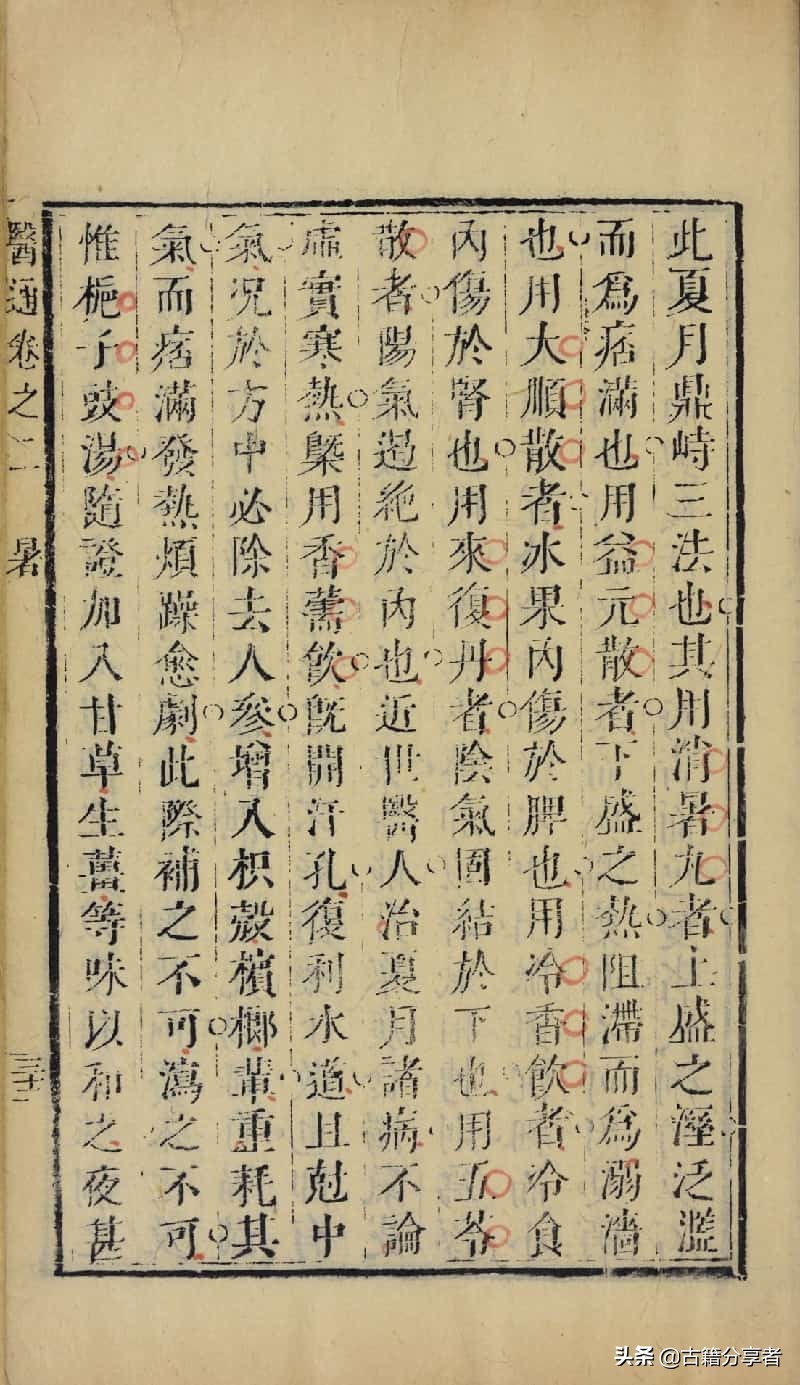 此夏月鼎峙三法也其用消暑丸者上盛之溼泛濫
而為痞滿也用益元散者下盛之熱阻滯而為溺濇
也用大順散者冰果內傷於脾也用冷香飲者冷食
內傷於腎也用來復丹者陰氣固結於下也用五苓
散者陽氣遏絕於內也近世醫人治夏月諸病不論
虛實寒熱槩用香薷飲既開汗孔復利水道且尅中
氣況於方中必除去人參增入枳殼檳榔輩重耗其
氣而痞滿發熱煩躁愈劇此際補之不可瀉之不可
惟梔子豉湯隨證加入甘草生薑等味以和之夜甚
醫通卷之二 暑 三十二
头条 @古籍分享者